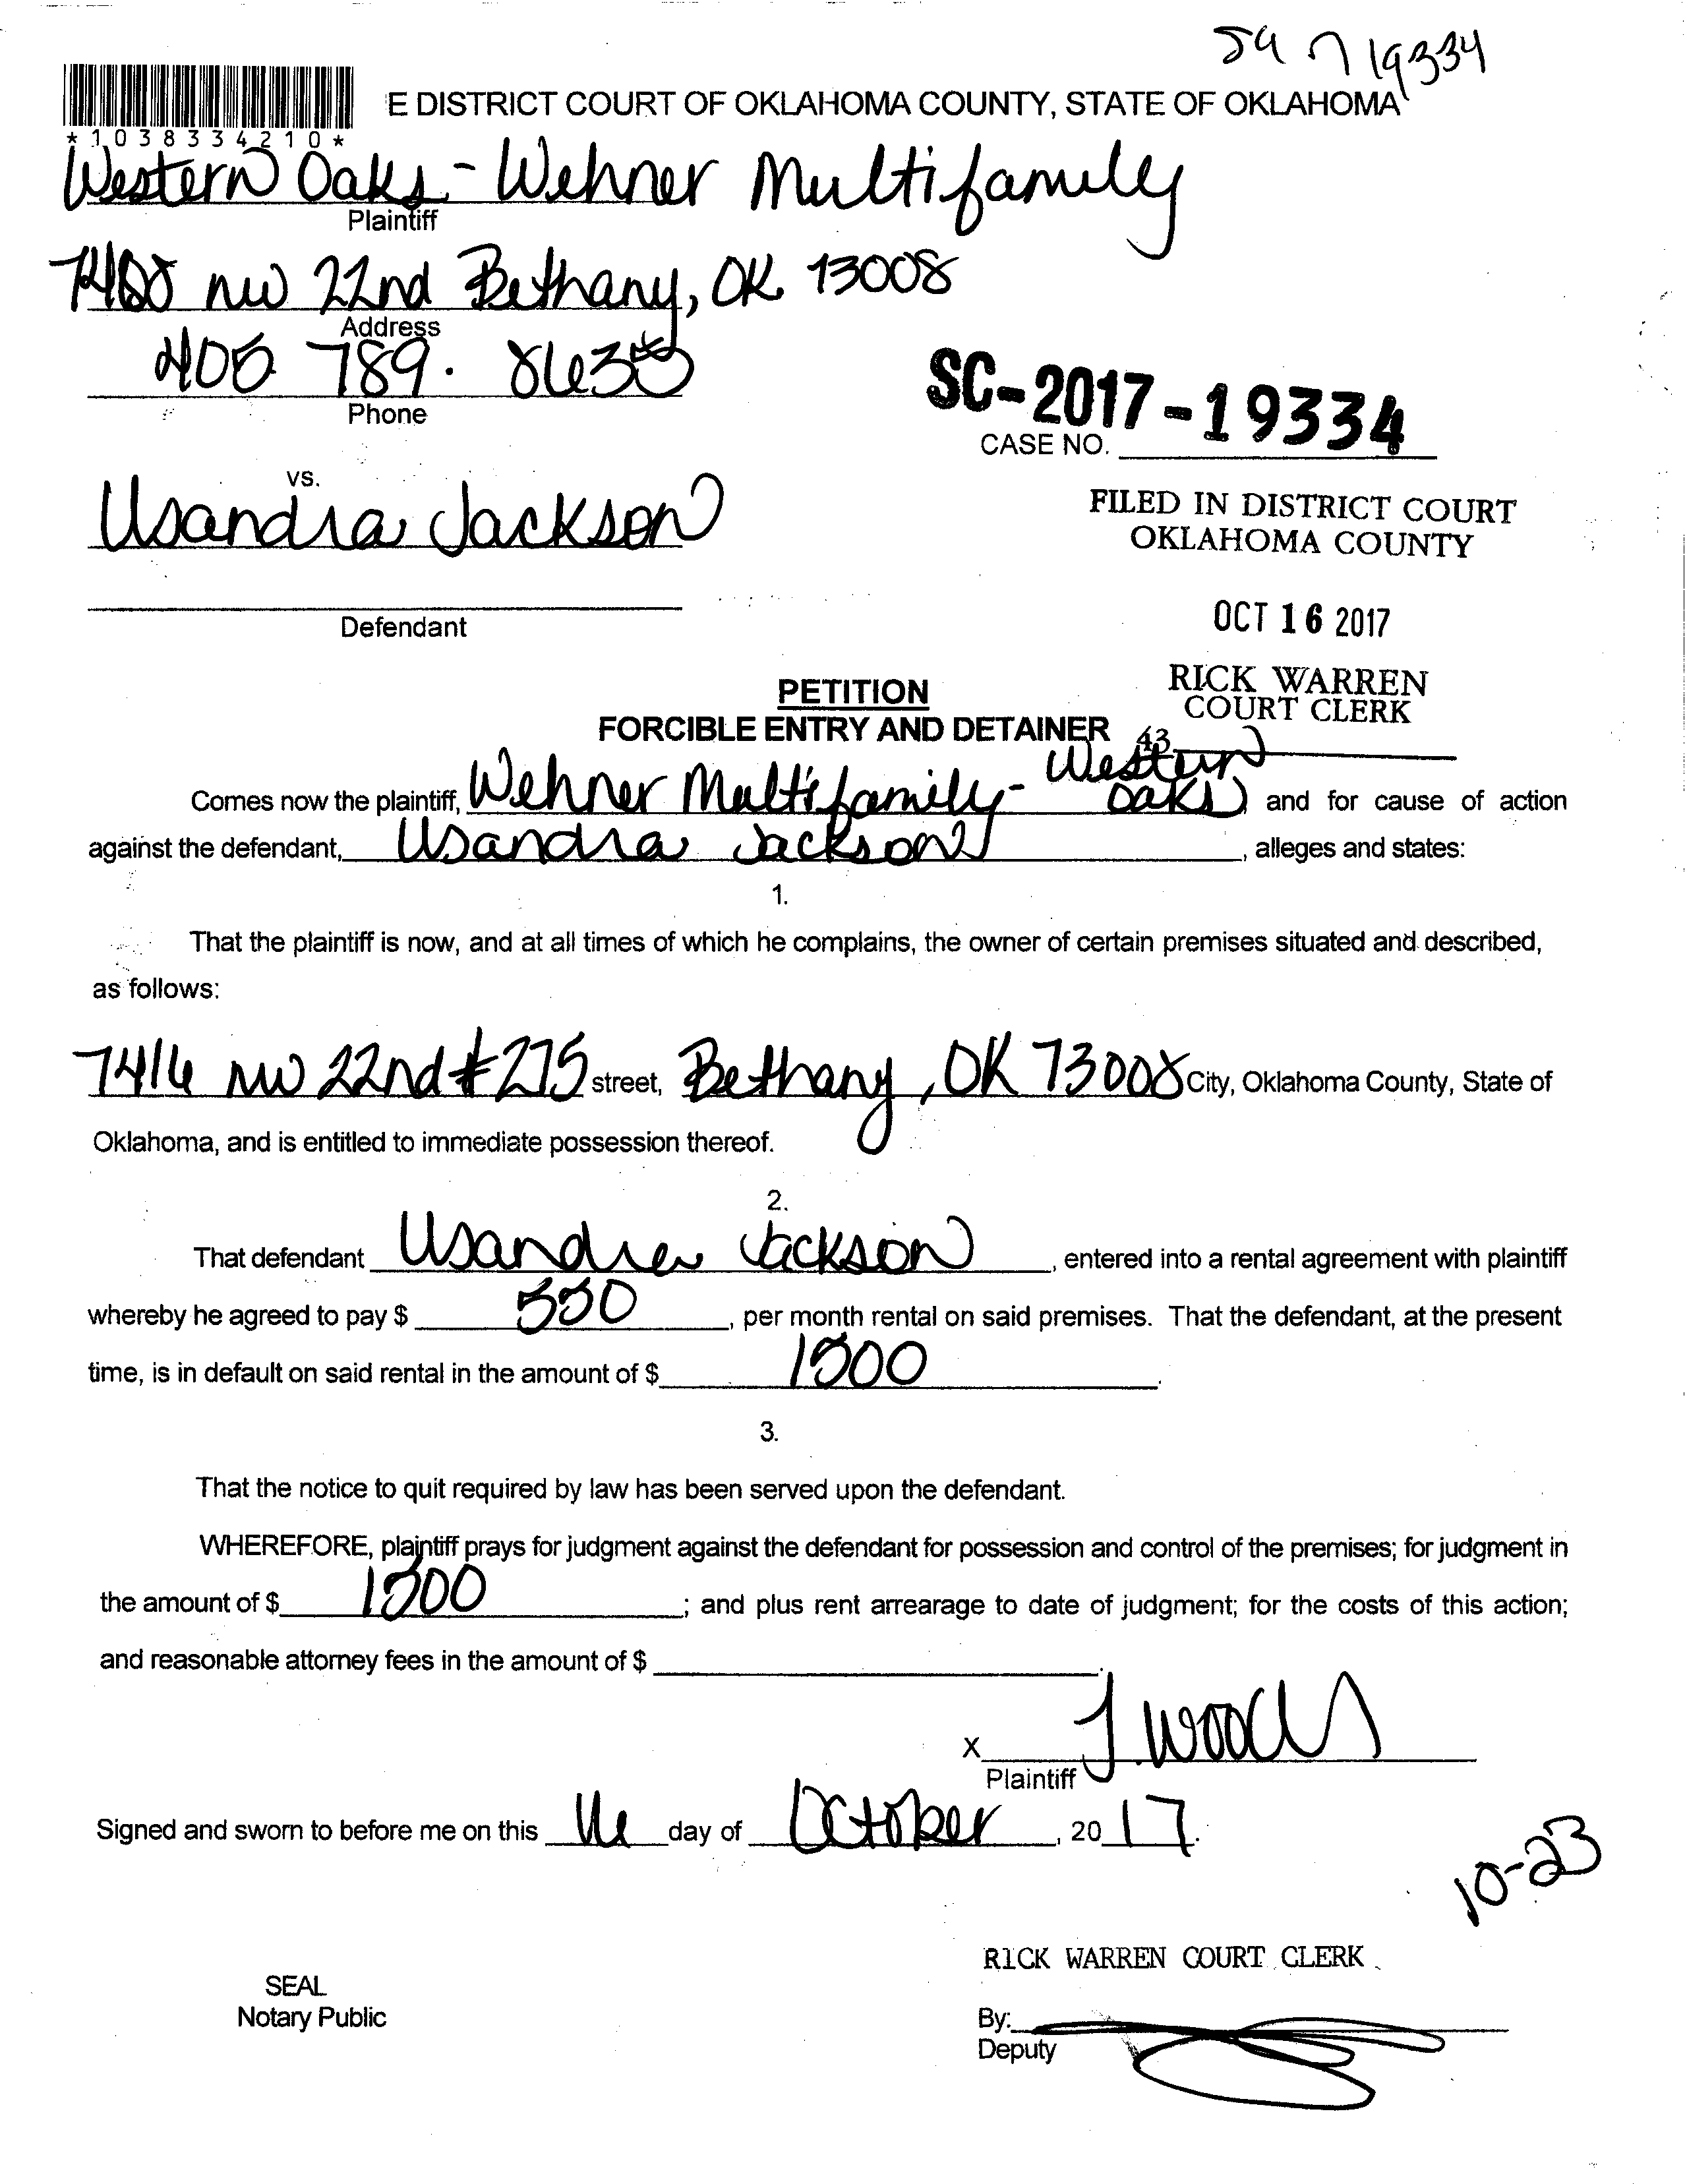 19334
E DISTRICT COURT OF OKLAHOMA COUNTY, STATE OF OKLAHOMA
*1038334210*
Western Oaks - Wehner Multifamily
Plaintiff
nw 22nd Bethany, OK 73008
Address
405 789.
Phone
SC-2017-19334
CASE NO.
vs.
Usandra Jackson
FILED IN DISTRICT COURT
OKLAHOMA COUNTY
Defendant
OCT 16 2017
PETITION
RICK WARREN
COURT CLERK
FORCIBLE ENTRY AND DETAINER
43
Comes now the plaintiff, Wehner Multifamily - Western Oaks, and for cause of action
against the defendant, Usandra Jackson, alleges and states:
1.
That the plaintiff is now, and at all times of which he complains, the owner of certain premises situated and described,
as follows:
7416 NW 22nd #275 street, Bethany, OK 73008 City, Oklahoma County, State of
Oklahoma, and is entitled to immediate possession thereof.
2.
That defendant Usandra Jackson, entered into a rental agreement with plaintiff
whereby he agreed to pay $ 550, per month rental on said premises. That the defendant, at the present
time, is in default on said rental in the amount of $ 1500.
3.
That the notice to quit required by law has been served upon the defendant.
WHEREFORE, plaintiff prays for judgment against the defendant for possession and control of the premises; for judgment in
the amount of $ 1500; and plus rent arrearage to date of judgment; for the costs of this action;
and reasonable attorney fees in the amount of $ .
X J woods
Plaintiff
Signed and sworn to before me on this 16 day of October, 2017.
10-23
RICK WARREN COURT CLERK
SEAL
Notary Public
By:
Deputy